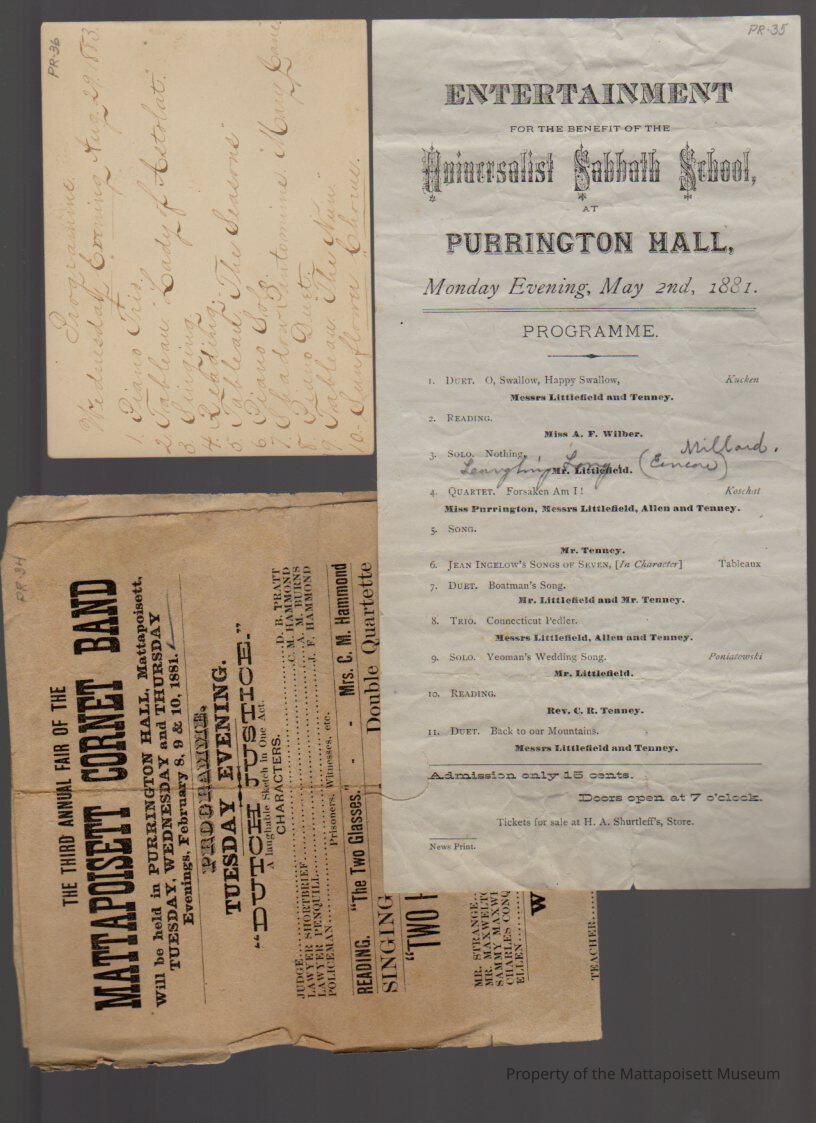 PR-36
Programme.
Wednesday Evening Aug. 29. 1883.
1. Piano Trio.
2 Tableau Lady of Astolat.
3 Singing
4. Reading.
5 Tableau "The Seasons"
6 Piano Solo.
7. Shadow Pantomime. Mary Jane
8. Piano Duet.
9. Tableau The Nun.
10- Sunflower Chorus.
PR-35
ENTERTAINMENT
FOR THE BENEFIT OF THE
Universalist Sabbath School,
AT
PURRINGTON HALL,
Monday Evening, May 2nd, 1881.
PROGRAMME.
1. DUET. O, Swallow, Happy Swallow, Kucken
Messrs Littlefield and Tenney.
2. READING.
Miss A. F. Wilber.
3. SOLO. Nothing. Millard.
Laughing Song Mr. Littlefield. (Encore)
4. QUARTET. Forsaken Am I! Koschat
Miss Purrington, Messrs Littlefield, Allen and Tenney.
5. SONG.
Mr. Tenney.
6. JEAN INGELOW'S SONGS OF SEVEN, [In Character] Tableaux
7. DUET. Boatman's Song.
Mr. Littlefield and Mr. Tenney.
8. TRIO. Connecticut Pedler.
Messrs Littlefield, Allen and Tenney.
9. SOLO. Yeoman's Wedding Song. Poniatowski
Mr. Littlefield.
10. READING.
Rev. C. R. Tenney.
11. DUET. Back to our Mountains.
Messrs Littlefield and Tenney.
Admission only 15 cents.
Doors open at 7 o'clock.
Tickets for sale at H. A. Shurtleff's, Store.
News Print.
PR-34
THE THIRD ANNUAL FAIR OF THE
MATTAPOISETT CORNET BAND
Will be held in PURRINGTON HALL, Mattapoisett,
TUESDAY, WEDNESDAY and THURSDAY
Evenings, February 8, 9 & 10, 1881.
PROGRAMME.
TUESDAY EVENING.
"DUTCH JUSTICE."
A laughable Sketch in One Act.
CHARACTERS.
JUDGE....D. B. PRATT
LAWYER SHORTBRIEF....C. M. HAMMOND
LAWYER PENQUILL....A. M. BURNS
POLICEMAN....J. F. HAMMOND
Prisoners, Witnesses, etc.
READING. "The Two Glasses." - - Mrs. C. M. Hammond
SINGING Double Quartette
"TWO
MR. STRANGE..
MR. MAXWELTO
SAMMY MAXW
CHARLES CONQ
ELLEN....
W
TEACHER....
Property of the Mattapoisett Museum